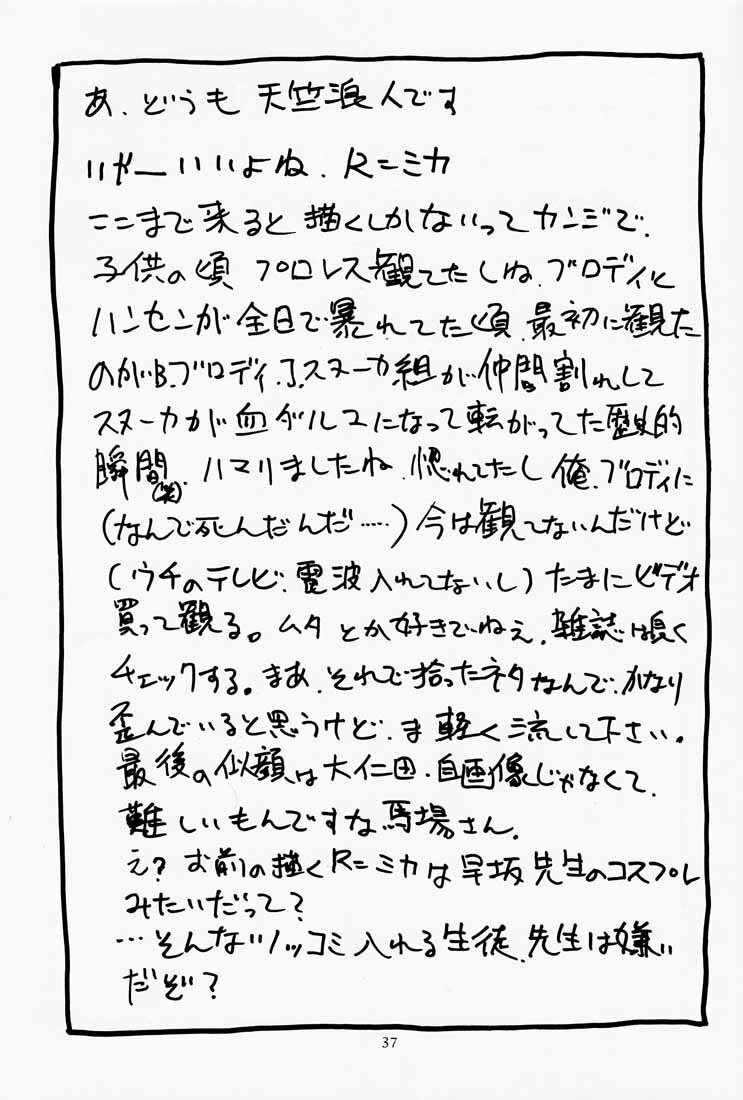 あ、どうも 天竺浪人です
いやーいいよね、R=ミカ
ここまで来ると描くしかないってカンジで、
子供の頃 プロレス観てたしね、ブロディと
ハンセンが全日で暴れてた頃、最初に観た
のがB.ブロディ、J.スヌーカ組が仲間割れして
スヌーカが血ダルマになって転がってた歴史的
瞬間(笑)、ハマりましたね、惚れてたし 俺、ブロディに
(なんで死んだんだ……)今は観てないんだけど
(ウチのテレビ、電波入れてないし)たまにビデオ
買って観る。ムタとか好きでねぇ、雑誌は良く
チェックする。まあ、それで拾ったネタなんで、かなり
歪んでいると思うけど、ま軽く流して下さい。
最後の似顔は大仁田、自画像じゃなくて、
難しいもんですな馬場さん、
え?お前の描くR=ミカは早坂先生のコスプレ
みたいだって?
…そんなツッコミ入れる生徒、先生は嫌い
だぞ?
37